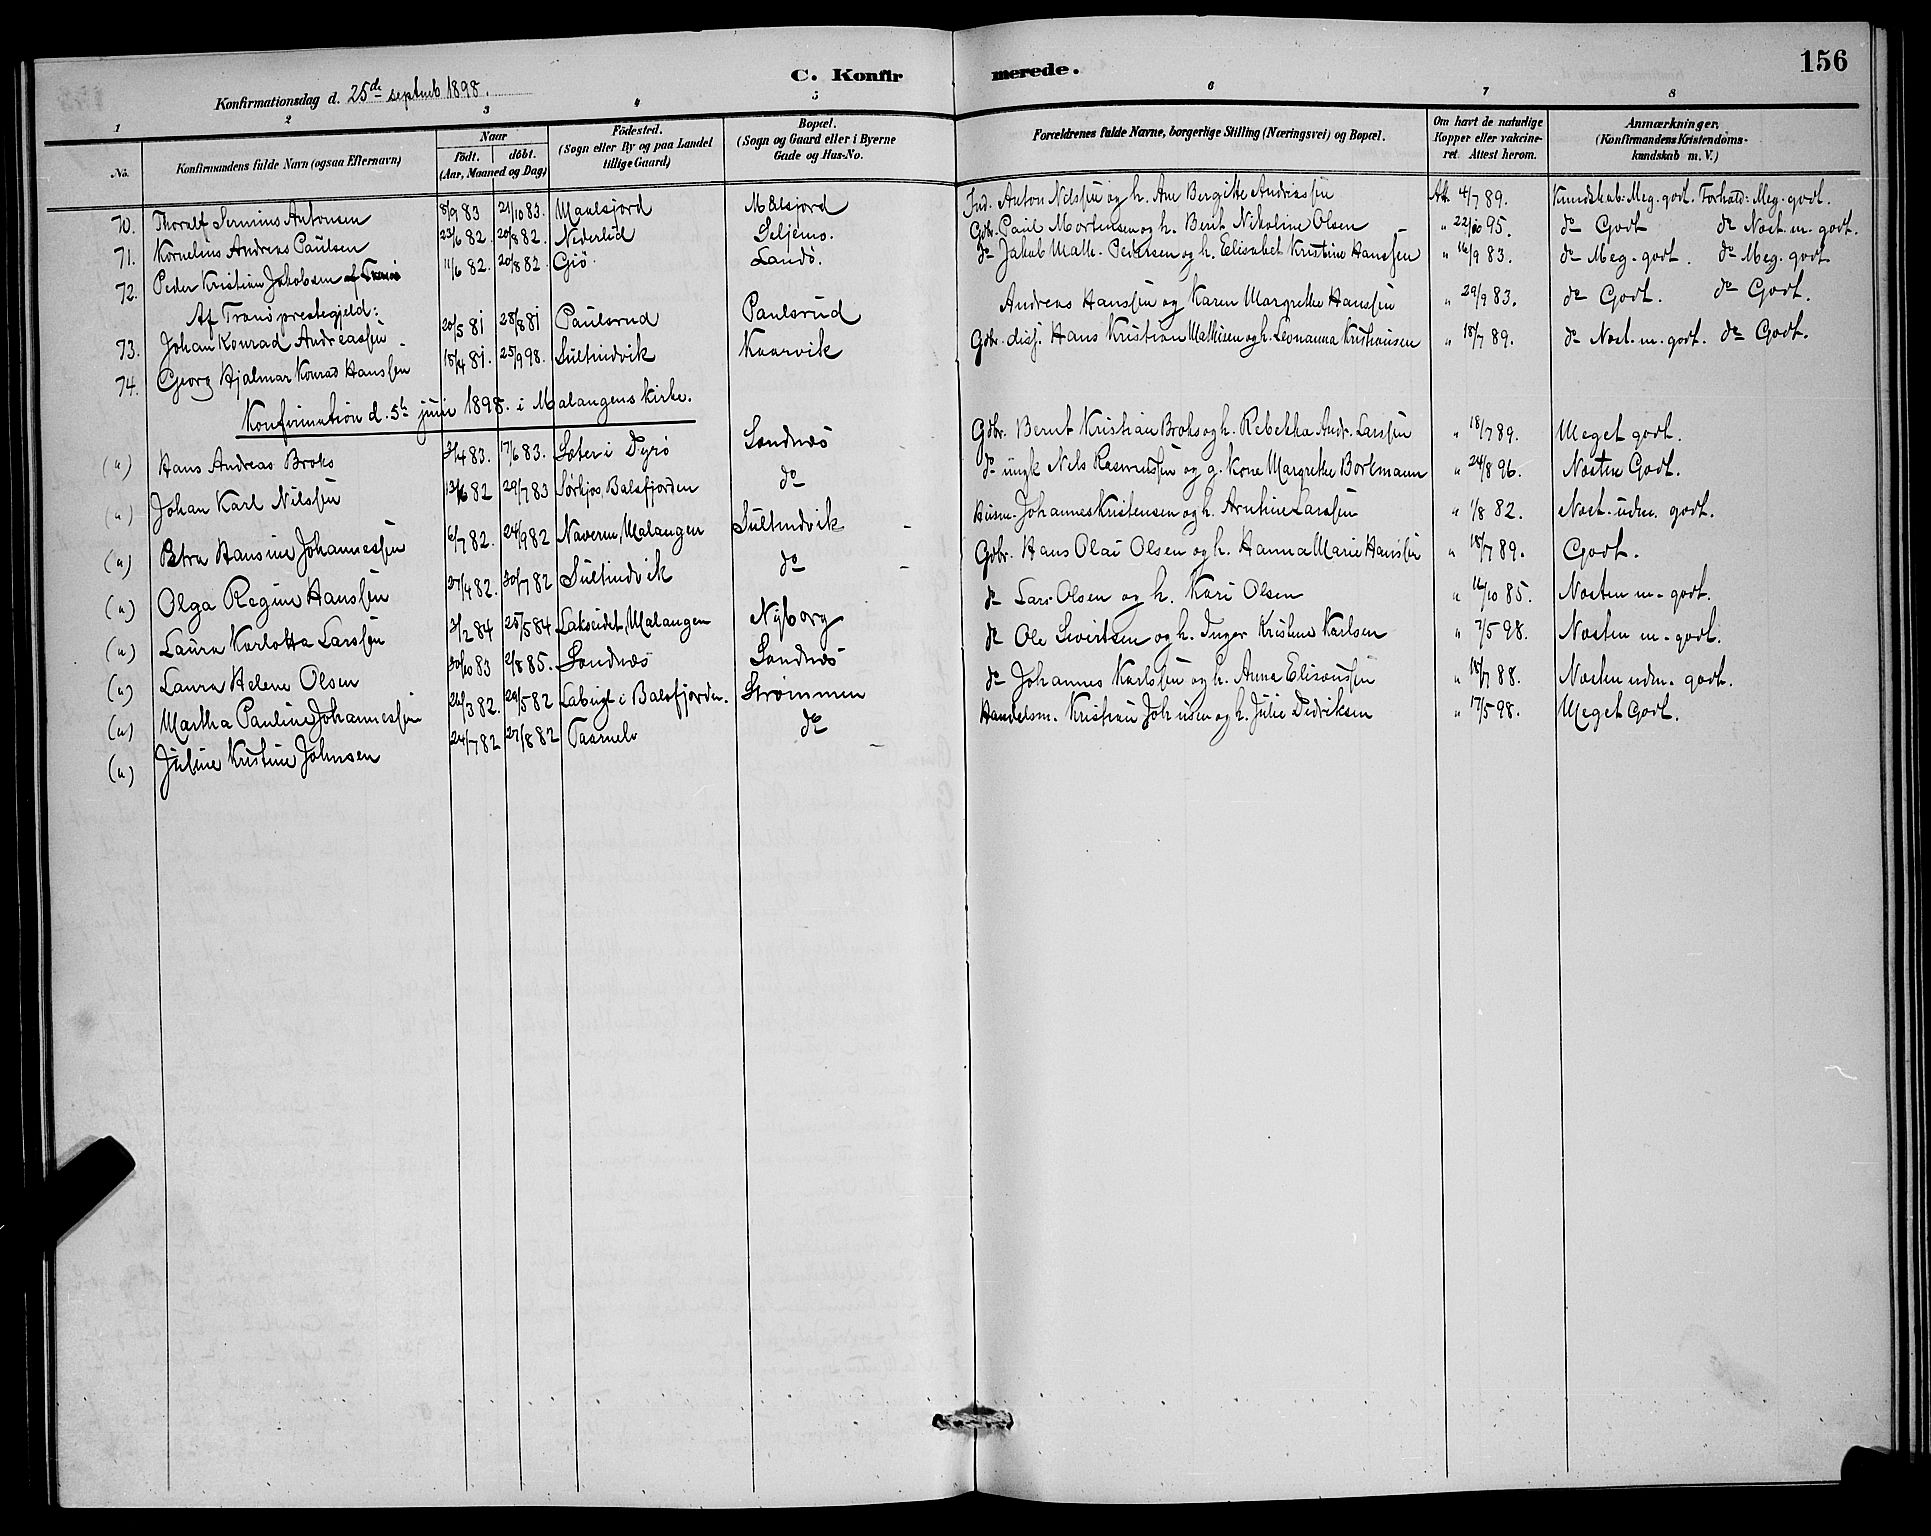 156
C. Konfirmerede.
Konfirmationsdag d. 25de septemb 1898.
1 2 3 4 5 6 7 8
No. Konfirmandens fulde Navn (ogsaa Efternavn) Naar födt. döbt. (Aar, Maaned og Dag) Födested. (Sogn eller By og paa Landet tillige Gaard) Bopæl. (Sogn og Gaard eller i Byerne Gade og Hus-No. Forældrenes fulde Navne, borgerlige Stilling (Næringsvei) og Bopæl. Om havt de naturlige Kopper eller vakcineret. Attest herom. Anmærkninger. (Konfirmandens Kristendomskundskab m. V.)
70. Thoralf Antonsen 8/9 83 21/10 83. Maalsjord Målsjord Ind. Anton Nilssen og h. Ane Bergitte Andreassen Att. 4/7 89. Kundskab: Meg. godt. Forhold: Meg. godt.
71. Kornelius Andreas Paulsen 23/6 82. 20/8 82. Seljemo. Gdbr. Paul Mortensen og h. Berit Nikoline Olsen " 22/10 95. do Godt do Næst. m. godt.
72. Peder Kristian Jakobsen af Tranø 11/6 82. 20/8 82. Giø. Sandö. do Jakob Math. Pedersen og h. Elisabet Kristine Hanssen " 16/9 83. do Meg. godt. do Meg. godt
Af Tranö prestegjeld:
73. Johan Konrad Andreassen 20/5 81 28/8 81 Paulsrud Paulsrud Andreas Hanssen og Karen Margrethe Hanssen " 29/9 83. do Godt. do Godt.
74. Georg Hjalmar Konrad Hanssen 18/4 81. 25/9 98. Sultindvik Kaarvik Gdbr. disp. Hans Kristian Mathisen og h. Leonanna Kristiansen " 18/7 89. do Næst. m. godt. do Godt.
Konfirmation d. 5te juni 1898. i Malangens kirke.
(u) Hans Andreas Broks 3/4 83. 17/6 83. Sæter i Dyrö Sandnæs Gdbr. Bernt Kristian Broks og h. Rebekka Andr. Larssen " 18/7 89. Meget godt.
(u) Johan Karl Nilssen 13/6 82 29/7 83 Balsfjorden do do ungk Nils Rasmussen og g. Kone Margrethe Bortmann " 24/8 96. Næsten Godt.
(u) Petra Hansine Johannessen 6/7 82. 24/9 82 Naveren, Malangen Sultindvik Johannes Kristensen og h. Arntine Larssen " 1/8 82. Næst. uden. godt.
(u) Olga Regine Hanssen 27/4 82. 30/7 82 Sultindvik do Gdbr. Hans Olai Olsen og h. Hanna Marie Hanssen " 18/7 89. Godt.
(u) Laura Karlotta Larssen 3/2 84 25/5 84 Lakseidet, Malangen Nyborg do Lars Olsen og h. Kari Olsen " 16/10 85. Næsten m. godt.
(u) Laura Helene Olsen 30/10 83 2/8 85. Sandnæs Sandnæs do Ole Sivertsen og h. Inger Kristine Karlsen " 7/5 98. Næsten m. godt.
(u) Martha Pauline Johannessen 26/3 82. 29/5 82 i Balsfjorden. Strømmen do Johannes Karlssen og h. Anna Eliseussen " 18/7 88. Næsten uden. godt.
(u) Juline Kristine Johnsen 24/7 82 27/8 82 Taarnelv do Handelsm. Kristian Johnsen og h. Julie Didriksen " 17/5 98. Meget Godt.